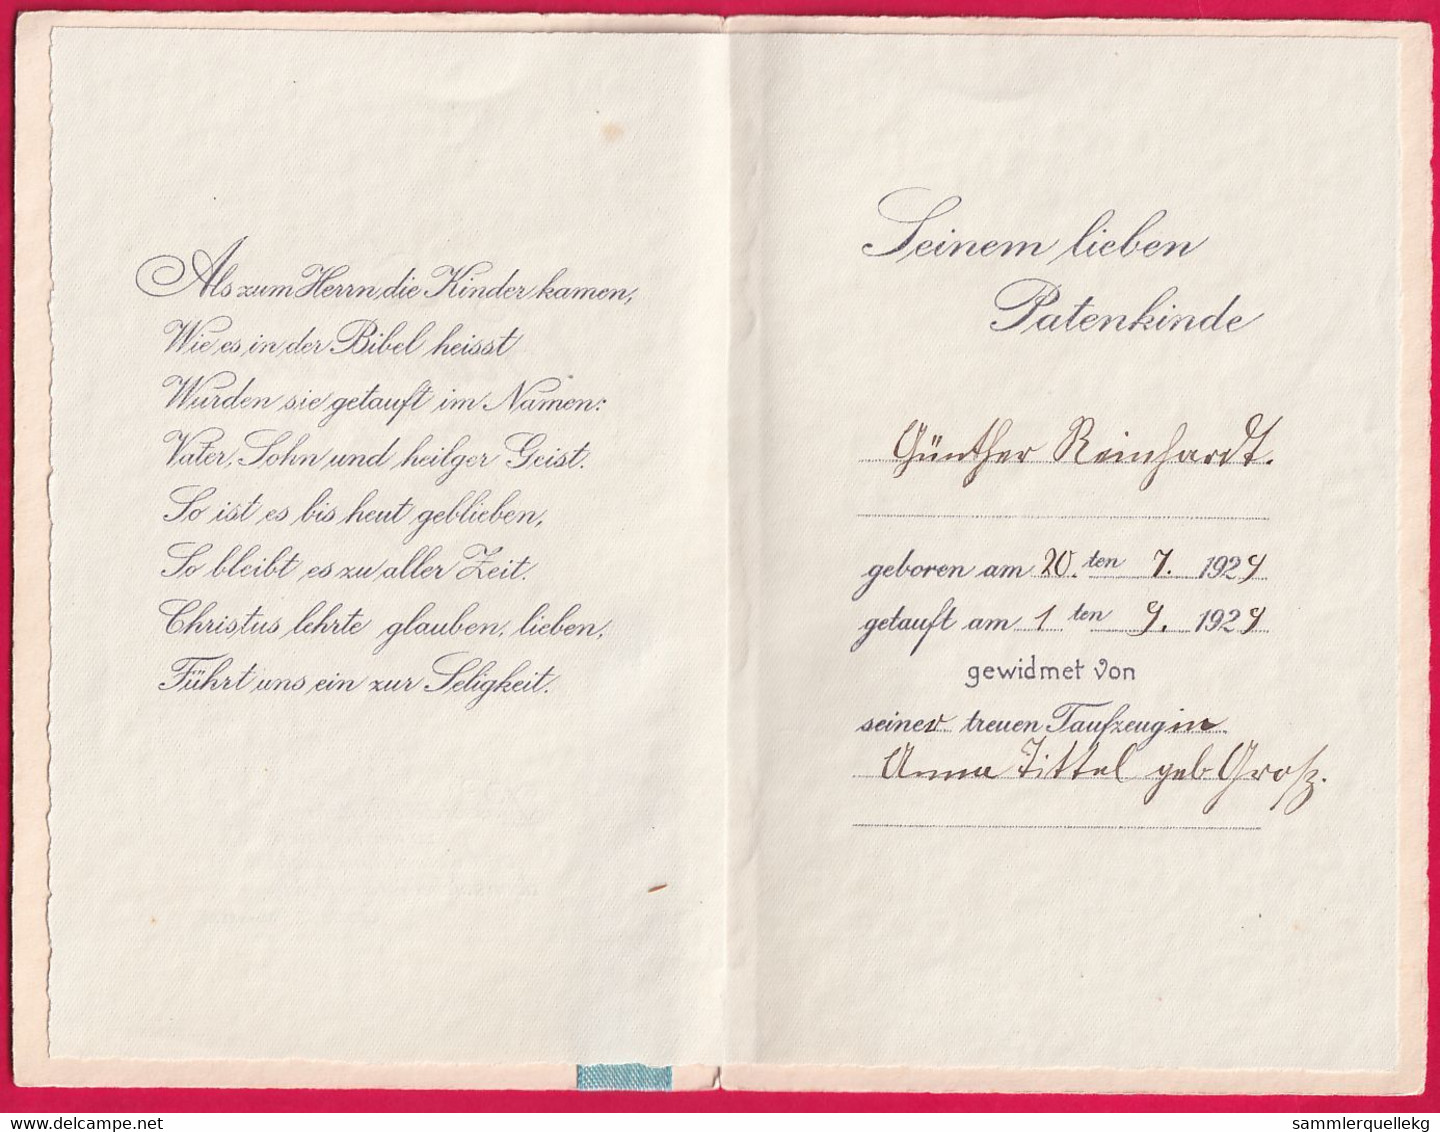 Als zum Herrn die Kinder kamen,
Wie es in der Bibel heisst
Wurden sie getauft im Namen:
Vater, Sohn und heilger Geist.
So ist es bis heut geblieben,
So bleibt es zu aller Zeit.
Christus lehrte glauben, lieben,
Führt uns ein zur Seligkeit.
Seinem lieben
Patenkinde
Günther Reinhardt.
geboren am 20. ten 7. 1929
getauft am 1 ten 9. 1929
gewidmet von
seiner treuen Taufzeugin
Anna Tittel geb. Groß.
delcampe.net
sammlerquellekg